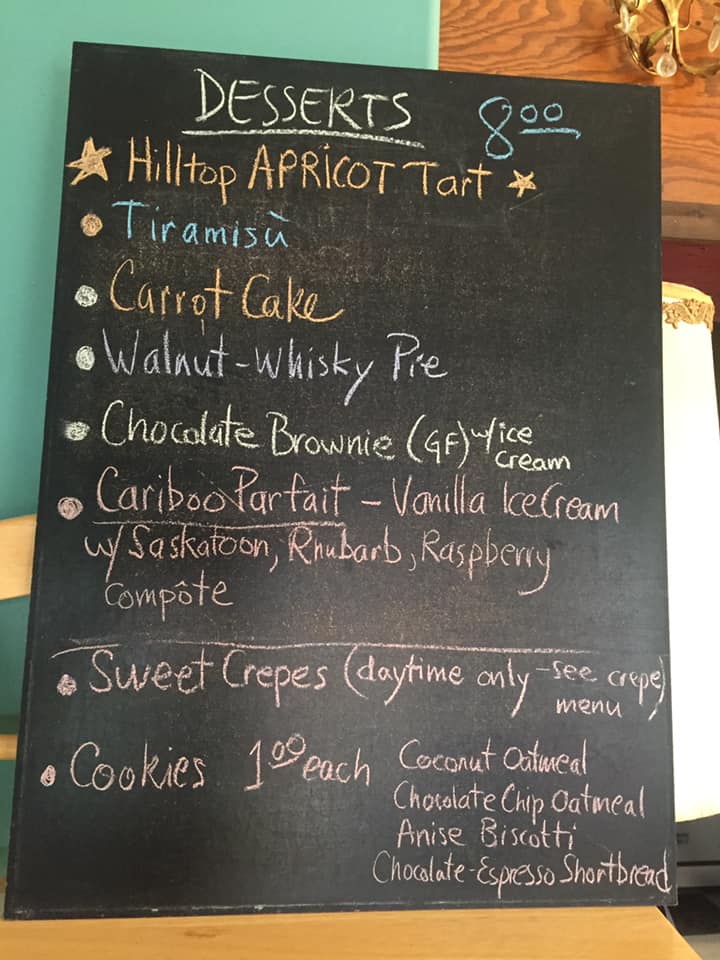 DESSERTS 8.00
Hilltop APRICOT Tart
Tiramisù
Carrot Cake
Walnut-Whisky Pie
Chocolate Brownie (GF) w/ ice
cream
Cariboo Parfait - Vanilla Ice Cream
w/ Saskatoon, Rhubarb, Raspberry
compôte
Sweet Crepes (daytime only - see crepe
menu)
Cookies 1.00 each
Coconut Oatmeal
Chocolate Chip Oatmeal
Anise Biscotti
Chocolate-Espresso Shortbread